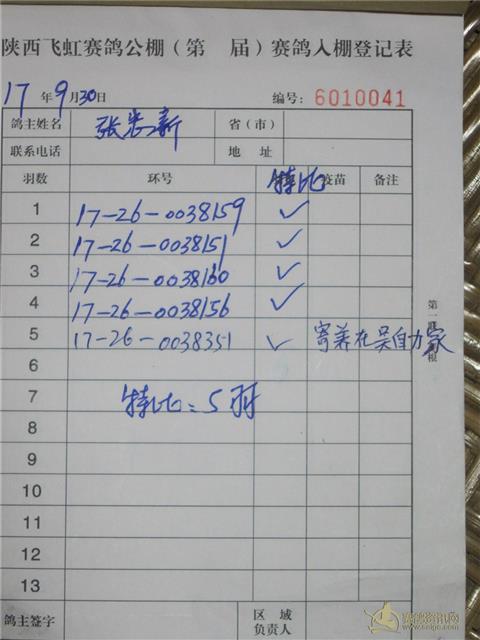 陕西飞虹赛鸽公棚（第 届）赛鸽入棚登记表
17 年 9 月 30 日 编号：6010041
鸽主姓名 张宏新 省（市）
联系电话 地 址
羽数 环号 特比 疫苗 备注
1 17-26-0038159 ✓
2 17-26-0038151 ✓
3 17-26-0038160 ✓
4 17-26-0038156 ✓
5 17-26-0038351 ✓ 寄养在吴自力家
6
7 特比：5羽
8
9
10
11
12
13
鸽主签字 区 域
负责人
第一联
根
赛鸽资讯网